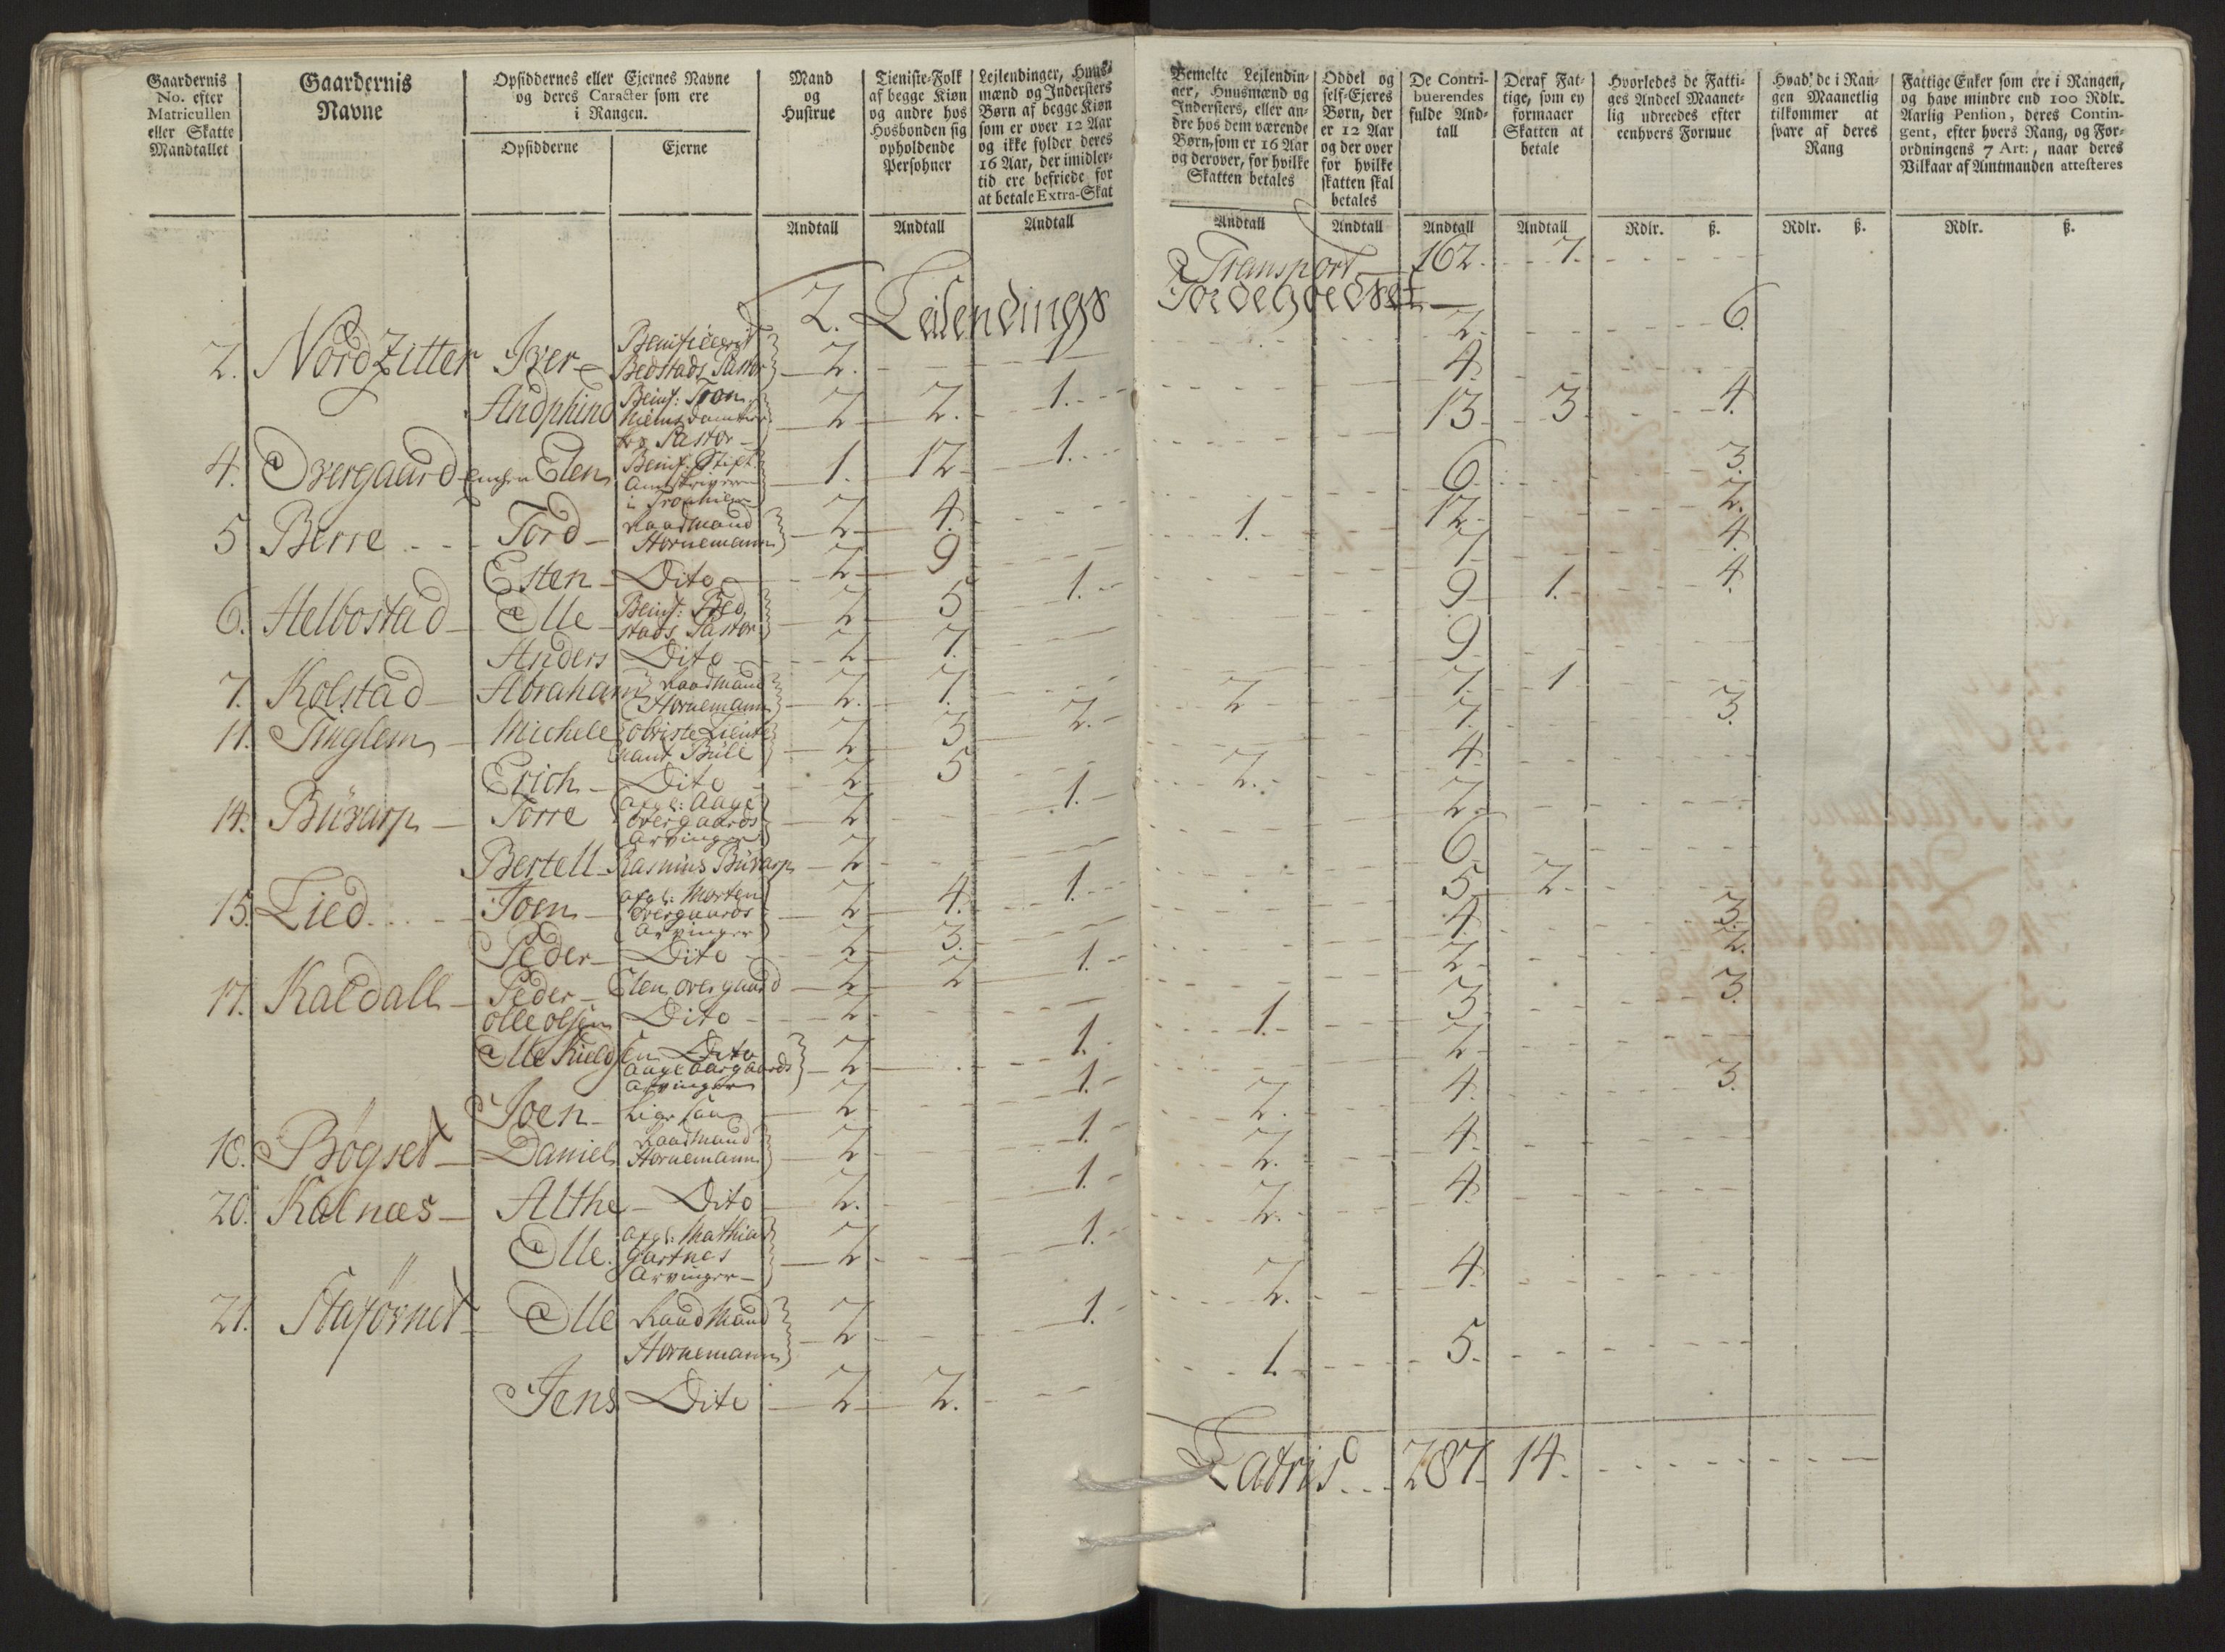 Gaardernis
No. efter
Matricullen
eller Skatte
Mandtallet
Gaardernis
Navne
Opsiddernes eller Ejernes Navne
og deres Caracter som ere
i Rangen.
Opsidderne
Ejerne
Mand
og
Hustrue
Tieniste-Folk
af begge Kiøn
og andre hos
Hosbonden sig
opholdende
Persohner
Lejlendinger, Huus-
mænd og Indersters
Børn af begge Kiøn
som er over 12 Aar
og ikke fylder deres
16 Aar, der imidler-
tid ere befriede for
at betale Extra-Skat
Bemelte Lejlendin-
ger, Huusmænd og
Indersters, eller an-
dre hos dem værende
Børn, som er 16 Aar
og derover, for hvilke
Skatten betales
Oddel og
self-Ejeres
Børn, der
er 12 Aar
og der over
for hvilke
skatten skal
betales
De Contri-
buerendes
fulde And-
tall
Deraf Fat-
tige, som ey
formaaer
Skatten at
betale
Hvorledes de Fatti-
ges Andeel Maanet-
lig udreedes efter
eenhvers Formue
Hvad de i Ran-
gen Maanetlig
tilkommer at
svare af deres
Rang
Fattige Enker som ere i Rangen,
og have mindre end 100 Rdlr.
Aarlig Pension, deres Contin-
gent, efter hvers Rang, og For-
ordningens 7 Art:, naar deres
Vilkaar af Amtmanden attesteres
Andtall Andtall Andtall Andtall Andtall Andtall Andtall Rdlr. ß. Rdlr. ß. Rdlr. ß.
Transport 162. 7.
2. Leilendings Jordegodset
2. Nordzitter Iver Benificeerit
Bedstads Pastor 2. 2. 6.
Andphind Benif: Tron
hiems Domkir
kes Pastor 2 2. 1. 4.
4. Overgaard Enchen Elen Benif: Stift
Amtskriveren
i Tronhiem 1. 12 1. 13 3 4.
5 Berre Tord Raadmand
Hornemann 2 4. 6. 3.
Esten Dito 2 9 1. 12 2.
6. Helbostad Olle Benif: Bed
stads Pastor 2 5 1. 7. 4.
Anders Dito 2 7. 9 1. 4.
7. Kolstad Abraham Raadmand
Hornemann 2. 7. 9.
11. Tinglem Michele Obriste Lieute
nant Büll 2 3 2. 2 7. 1
Erich Dito 2 5 7. 3.
14. Büvarp Torre afgl: Aage
Overgaards
Arvinger 2 1. 2. 4.
Bertell Rasmus Büvarp 2 2.
15. Lied Joen afgl: Morten
Overgaards
Arvinger 2 4. 1. 6.
Peder Dito 2 3. 5 2.
17. Kaldall Peder Elen Overgaard 2 2 1. 4. 3.
Olle Olsen Dito 2 2. 2.
Olle Kield sen Dito
Aage Overgaards
Arvinger 2 1. 1. 3 3.
Joen Lige saa 2 1. 2
18. Bøgset Daniel Raadmand
Hornemann 2 1. 2. 4. 3.
20. Kalnæs Althe Dito 2. 1. 2. 4.
Olle afgl: Mathias
Gartnes
Arvinger 2 1. 2. 4.
21. Olle Raadmand
Hornemann 2 1. 2. 4.
Jens Dito 2 2. 1. 5.
Latris 287. 14.